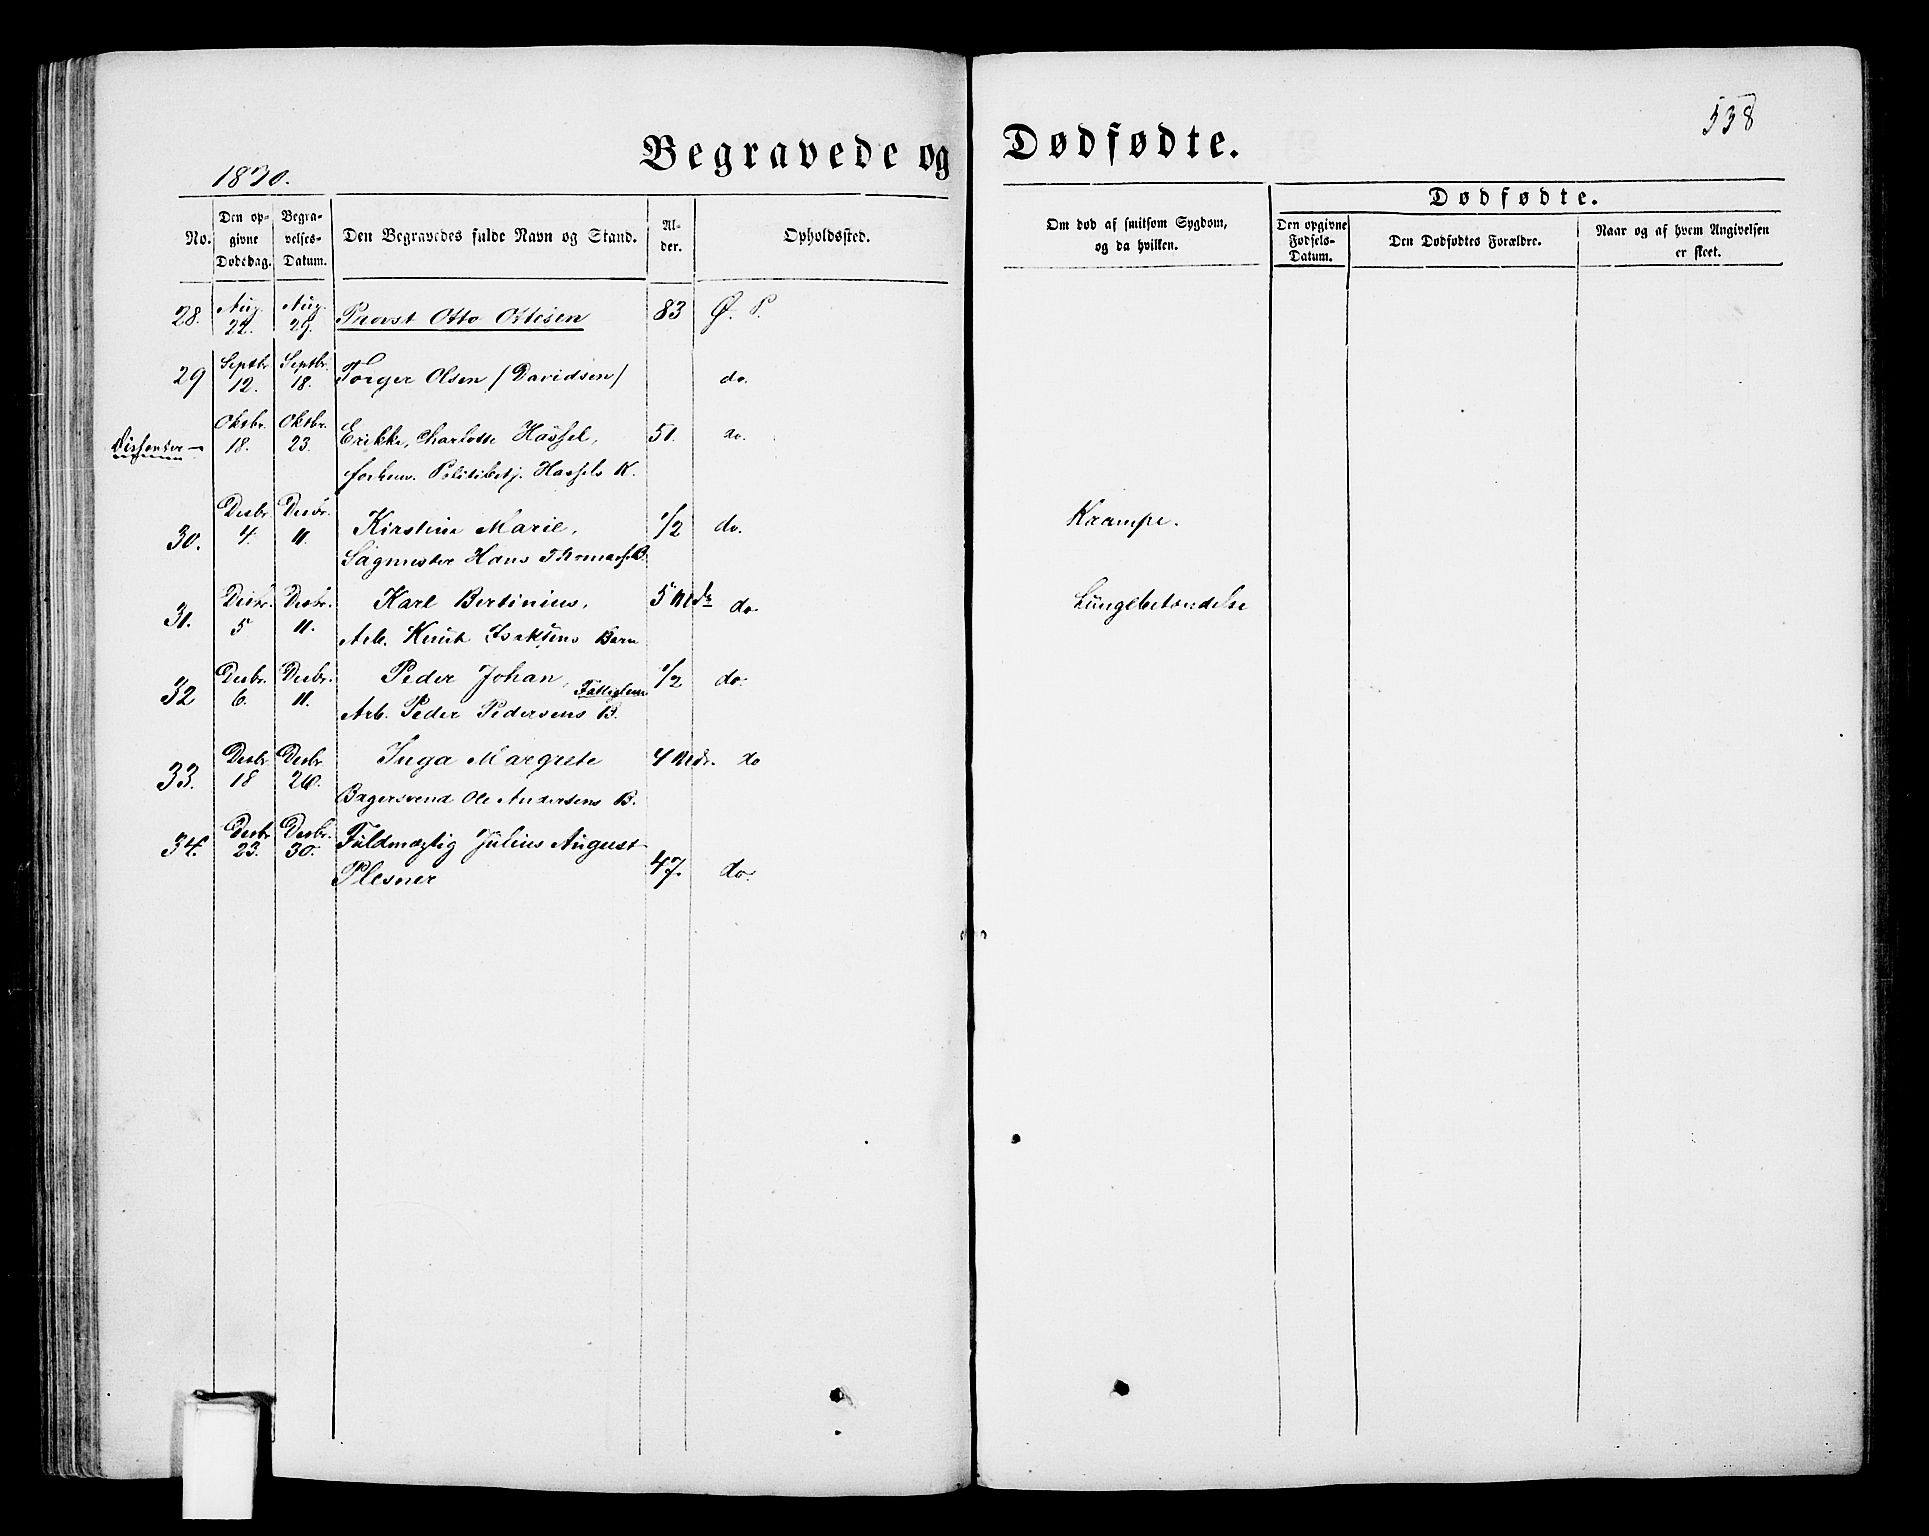 538
Begravede og Dødfødte.
1870.
Dødfødte.
No.
Den op-
givne
Dødsdag.
Begra-
velses-
Datum.
Den Begravedes fulde Navn og Stand.
Al-
der.
Opholdssted.
Om død af smitsom Sygdom,
og da hvilken.
Den opgivne
Fødsels-
Datum.
Den Dødfødtes Forældre.
Naar og af hvem Angivelsen
er skeet.
28. Aug. 22. Aug. 29. Provst Otto Ottesen 83 Ø. P.
29 Septbr. 12. Septbr. 18. Torger Olsen /Davidsen/ do.
Dissenter – Oktbr. 18. Oktbr. 23. Erikke Charlotte Hassel, 51. do.
forhenv. Politibetj. Hassels K.
30. Desbr. 4. Desbr. 11. Kirstine Marie, 1/2 do. Krampe.
Sagmester Hans Thomass. B.
31. Desbr. 5 Desbr. 11. Karl Bertinius, 5 Mdr do. Lungebetændelse
Arb. Knut Isaksens Barn
32 Desbr. 6. Desbr. 11. Peder Johan, 1/2 do.
Fattiglem
Arb. Peder Pedersens B.
33. Desbr. 18 Desbr. 26. Inga Margrete 4 Mdr. do
Bagersvend Ole Andersens B.
34. Desbr. 23. Desbr. 30. Fuldmægtig Julius August
Plesner 47. do.